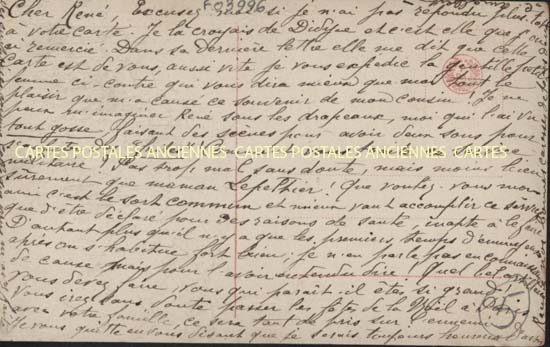 F03996
Cher René, Excusez-moi si je n'ai pas répondu plus tôt
à votre carte. Je la croyais de Didyse et c'est elle que j'en
ai remercié. Dans sa dernière lettre elle me dit que cette
carte est de vous, aussi vite je vous expédie la gentille petite
femme ci-contre qui vous dira mieux que moi tout le
plaisir que m'a causé ce souvenir de mon cousin. Je ne
peux m'imaginer René sous les drapeaux, moi qui l'ai vu
tout gosse faisant des scènes pour avoir deux sous pour
CARTES POSTALES ANCIENNES CARTES POSTALES ANCIENNES CARTES
Pas trop, sans doute, mais moins bien
sûrement que maman Lepelhier! Que voulez-vous mon
ami c'est le sort commun et mieux vaut accomplir ce service
que d'être déclaré pour des raisons de santé, inapte à le faire
D'autant plus qu'il n'y a que les premiers temps d'ennuyeux
après on s'habitue fort bien; je n'en parle pas en connaissance
de cause mais pour l'avoir entendu dire. Quel bel
vous devez faire, vous qui paraît-il êtes si grand!
Vous irez sans doute passer les fêtes de la Noël à
avec votre famille, ce sera tant de pris sur l'ennemi
Je vous quitte en vous disant que je serais toujours heureuse d'avoir